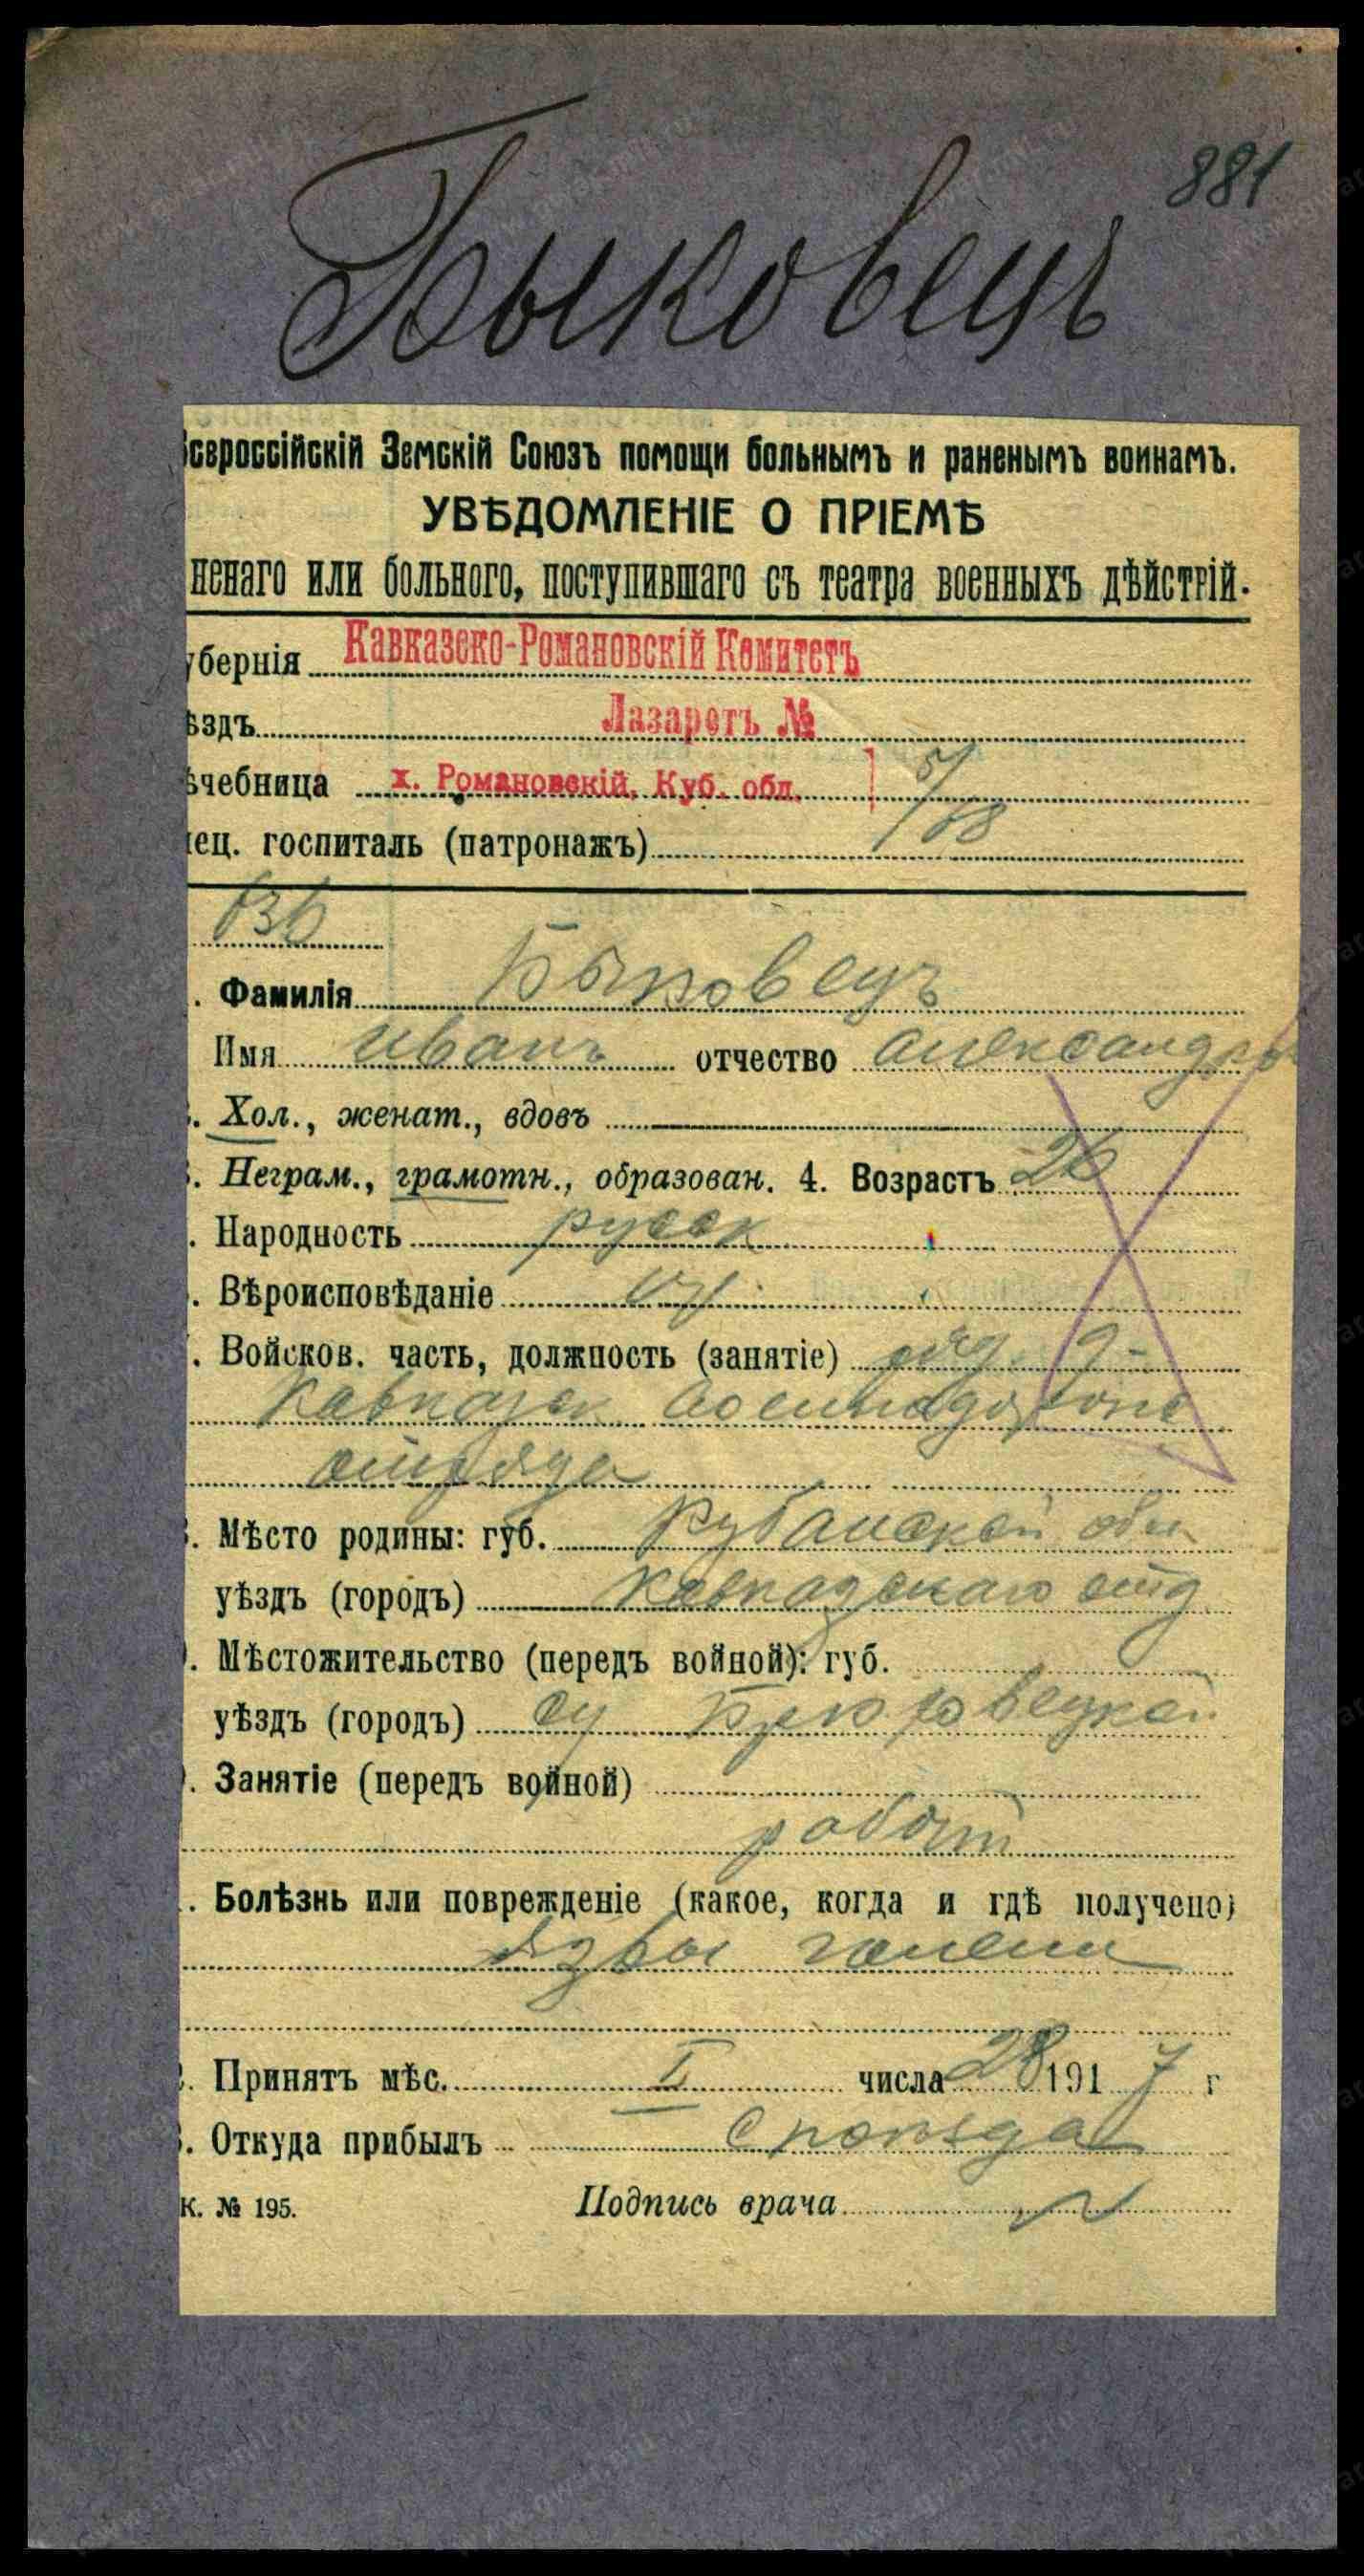 881
Быковецъ
сероссійскій Земскій Союзъ помощи больнымъ и раненымъ воинамъ.
УВѢДОМЛЕНІЕ О ПРІЕМѢ
ненаго или больного, поступившаго съ театра военныхъ дѣйствій.
убернія Кавказско-Романовскій Комитетъ
ѣздъ Лазаретъ №
ѣчебница х. Романовскій, Куб. обл. 5/18
ец. госпиталь (патронажъ)
636
. Фамилія Быковецъ
Имя Иванъ отчество Александров
. Хол., женат., вдовъ
. Неграм., грамотн., образован. 4. Возрастъ 26
. Народность русск
. Вѣроисповѣданіе
. Войсков. часть, должность (занятіе) ряд. 9-
Кавказск военнодорожн
отряда
. Мѣсто родины: губ. Кубанской обл
уѣздъ (городъ) Кавказскаго отд
. Мѣстожительство (передъ войной): губ.
уѣздъ (городъ) ст Брюховецкой
. Занятіе (передъ войной)
работ
. Болѣзнь или поврежденіе (какое, когда и гдѣ получено)
язвы голени
. Принятъ мѣс. I числа 28 1917 г
. Откуда прибылъ с поѣзда
К. № 195. Подпись врача